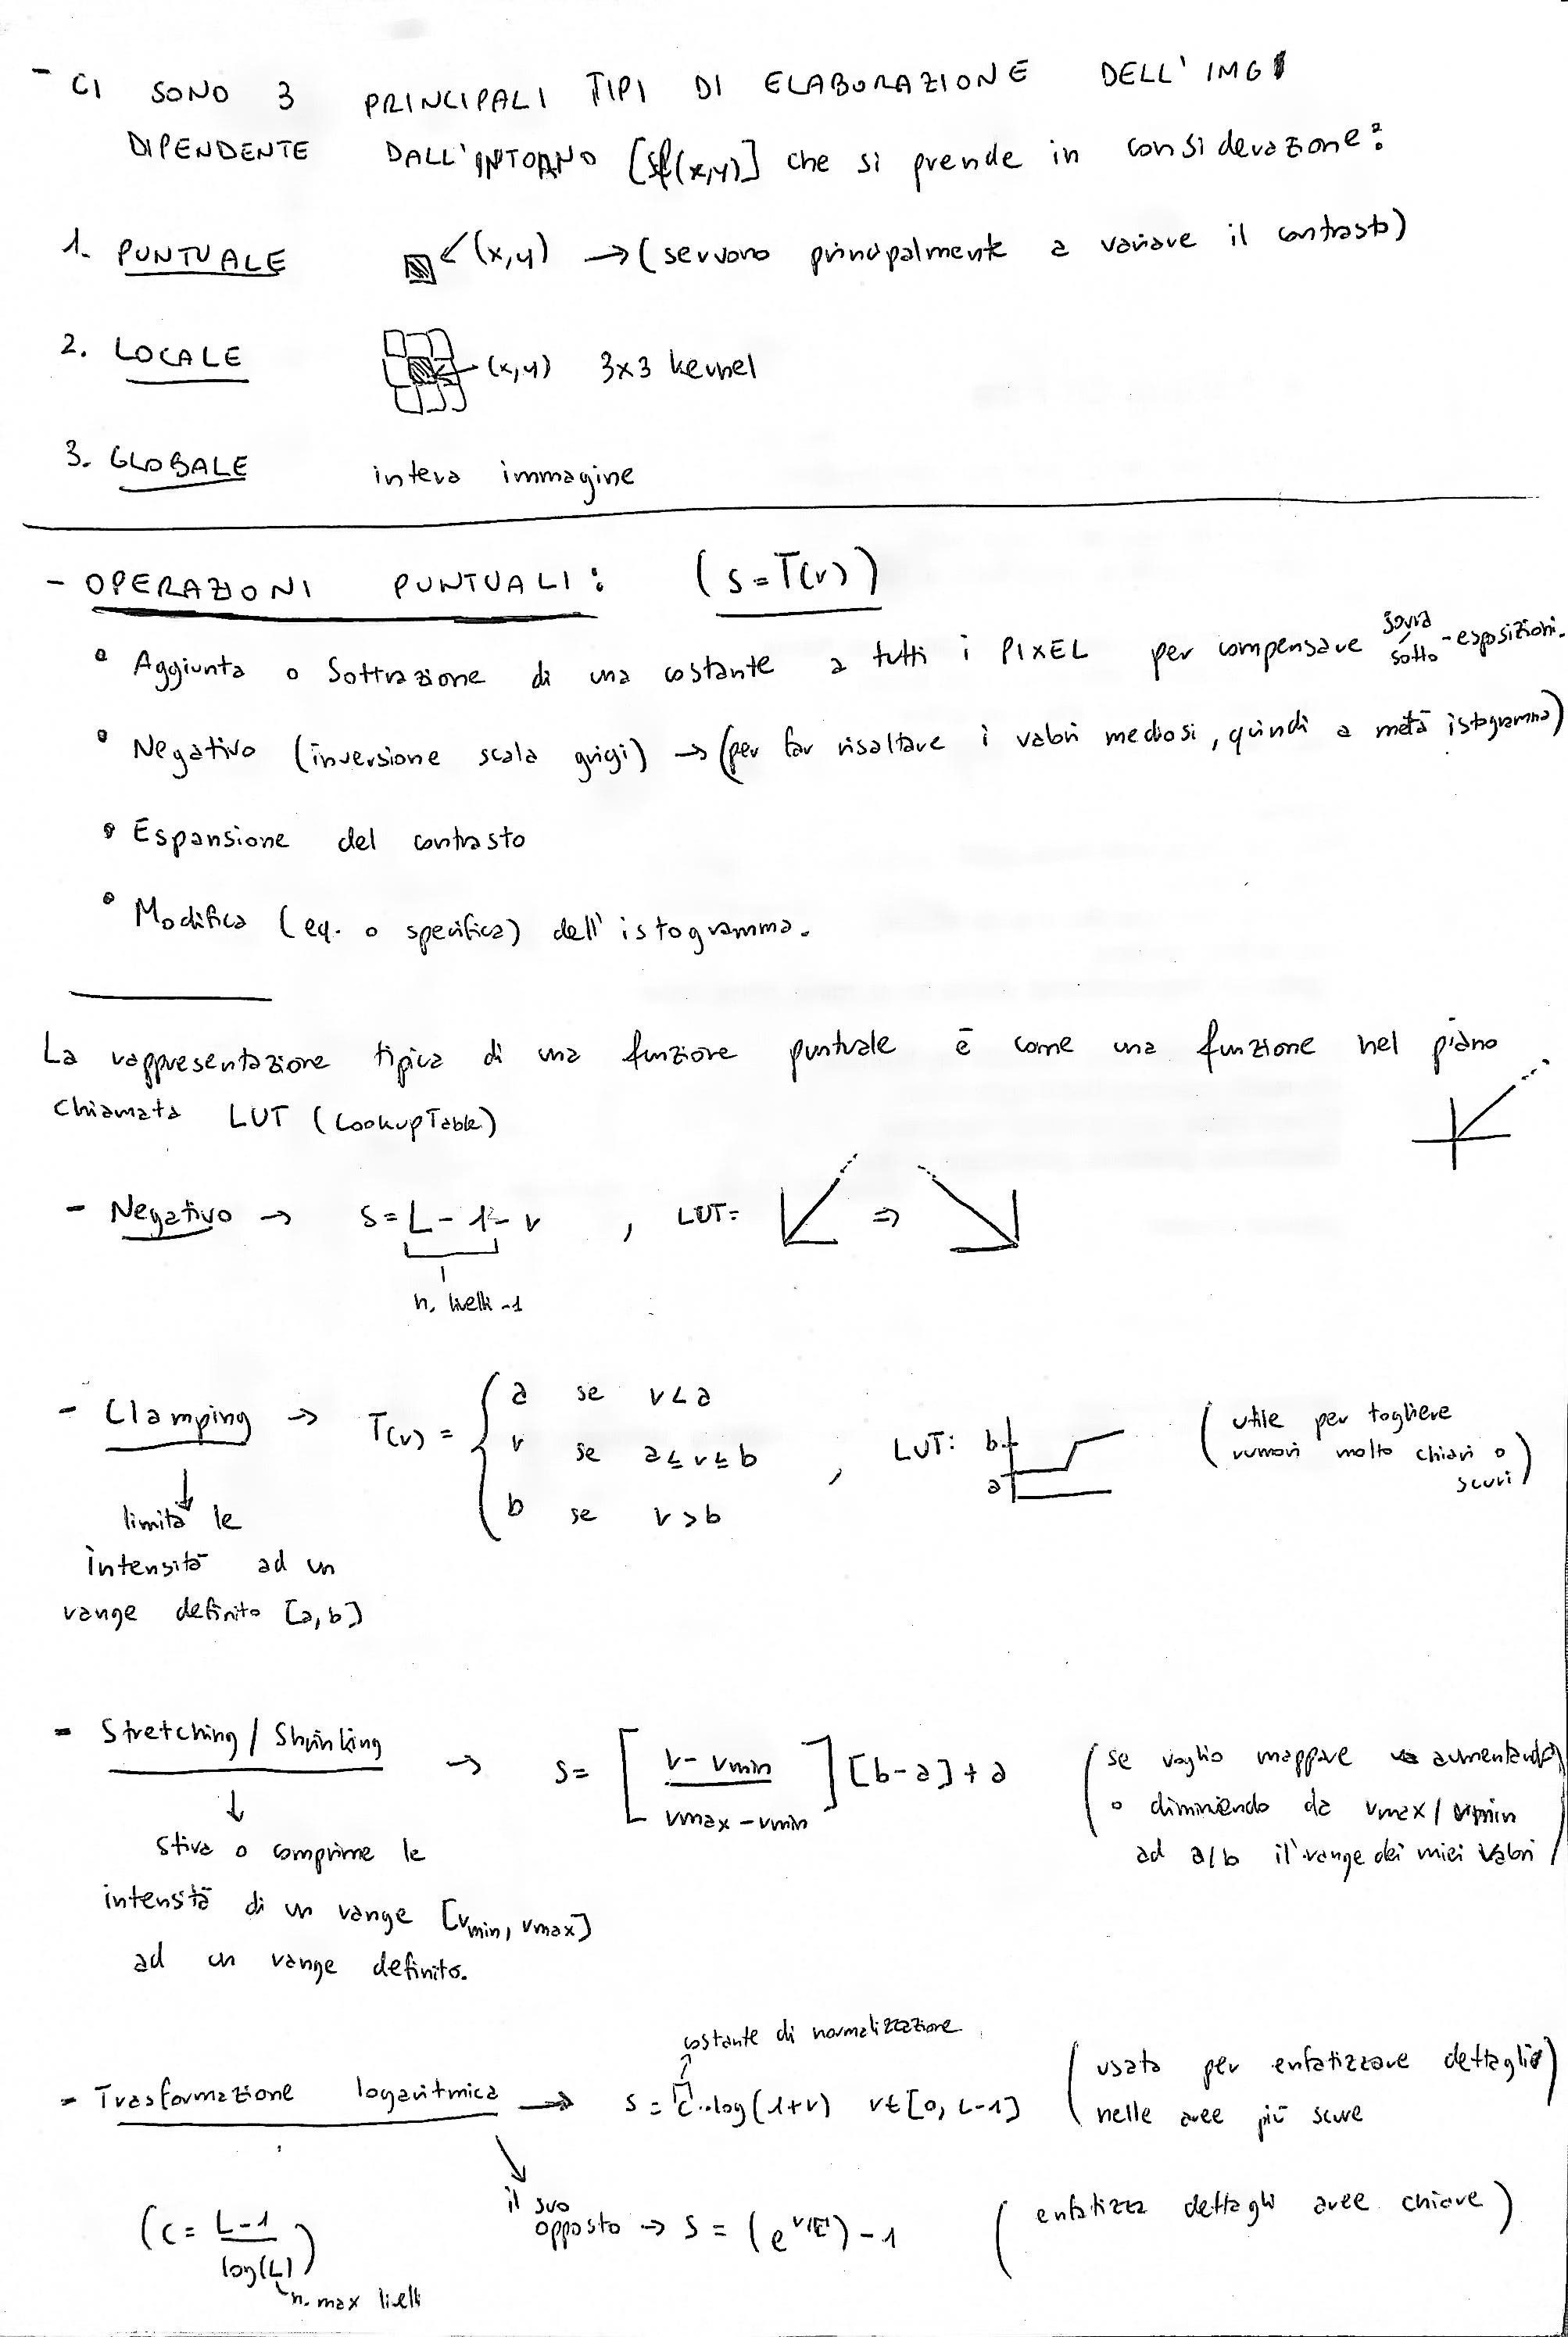 - CI SONO 3 PRINCIPALI TIPI DI ELABORAZIONE DELL'IMG
DIPENDENTE DALL'INTORNO [Sf(x,y)] che si prende in considerazione:
1. PUNTUALE (x,y) → (servono principalmente a variare il contrasto)
2. LOCALE (x,y) 3x3 kernel
3. GLOBALE intera immagine
- OPERAZIONI PUNTUALI: (s=T(r))
• Aggiunta o Sottrazione di una costante a tutti i PIXEL per compensare sovra/sotto-esposizioni.
• Negativo (inversione scala grigi) → (per far risaltare i valori mediosi, quindi a metà istogramma)
• Espansione del contrasto
• Modifica (eq. o specifica) dell'istogramma.
La rappresentazione tipica di una funzione puntuale è come una funzione nel piano
chiamata LUT (LookupTable)
- Negativo → s = L - 1 - r , LUT= ⇒
n. livelli -1
- Clamping → T(r) = { a se r < a
r se a ≤ r ≤ b
b se r > b
, LUT: b a
(utile per togliere
rumori molto chiari o
scuri)
↓
limita le
intensità ad un
range definito [a,b]
- Stretching/Shrinking → s= [ r - rmin / rmax - rmin ] [b-a]+a
(se voglio mappare aumentando
o diminuendo da rmax/rmin
ad a/b il range dei miei valori)
↓
stira o comprime le
intensità di un range [rmin, rmax]
ad un range definito.
costante di normalizzazione
- Trasformazione logaritmica → s = c·log(1+r) r∈[0, L-1]
(usata per enfatizzare dettagli
nelle aree più scure
(c = L-1 / log(L))
n. max livelli
il suo
opposto → s = (e^r/c) - 1
(enfatizza dettagli aree chiare)